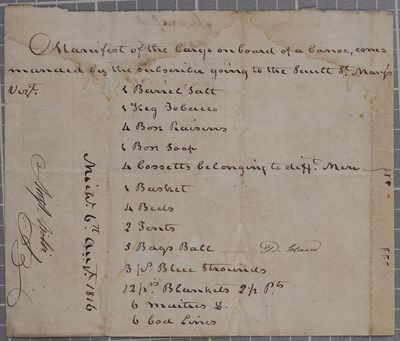 Manifest of the Cargo on board of a Canoe, com-
manded by the subscriber going to the Sault St. Marys
Vizt.
1 Barrel Salt
1 Keg Tobacco
4 Box Raisins
1 Box Soap
4 Cassetts belonging to difft. Men
1 Basket
4 Beds
2 Tents
5 Bags Ball D. Island
3 ps. Blue Strounds
12 prs Blankets 2½ Pts
6 maitres d.
6 Cod Lines
Micha. 6th Augt. 1816